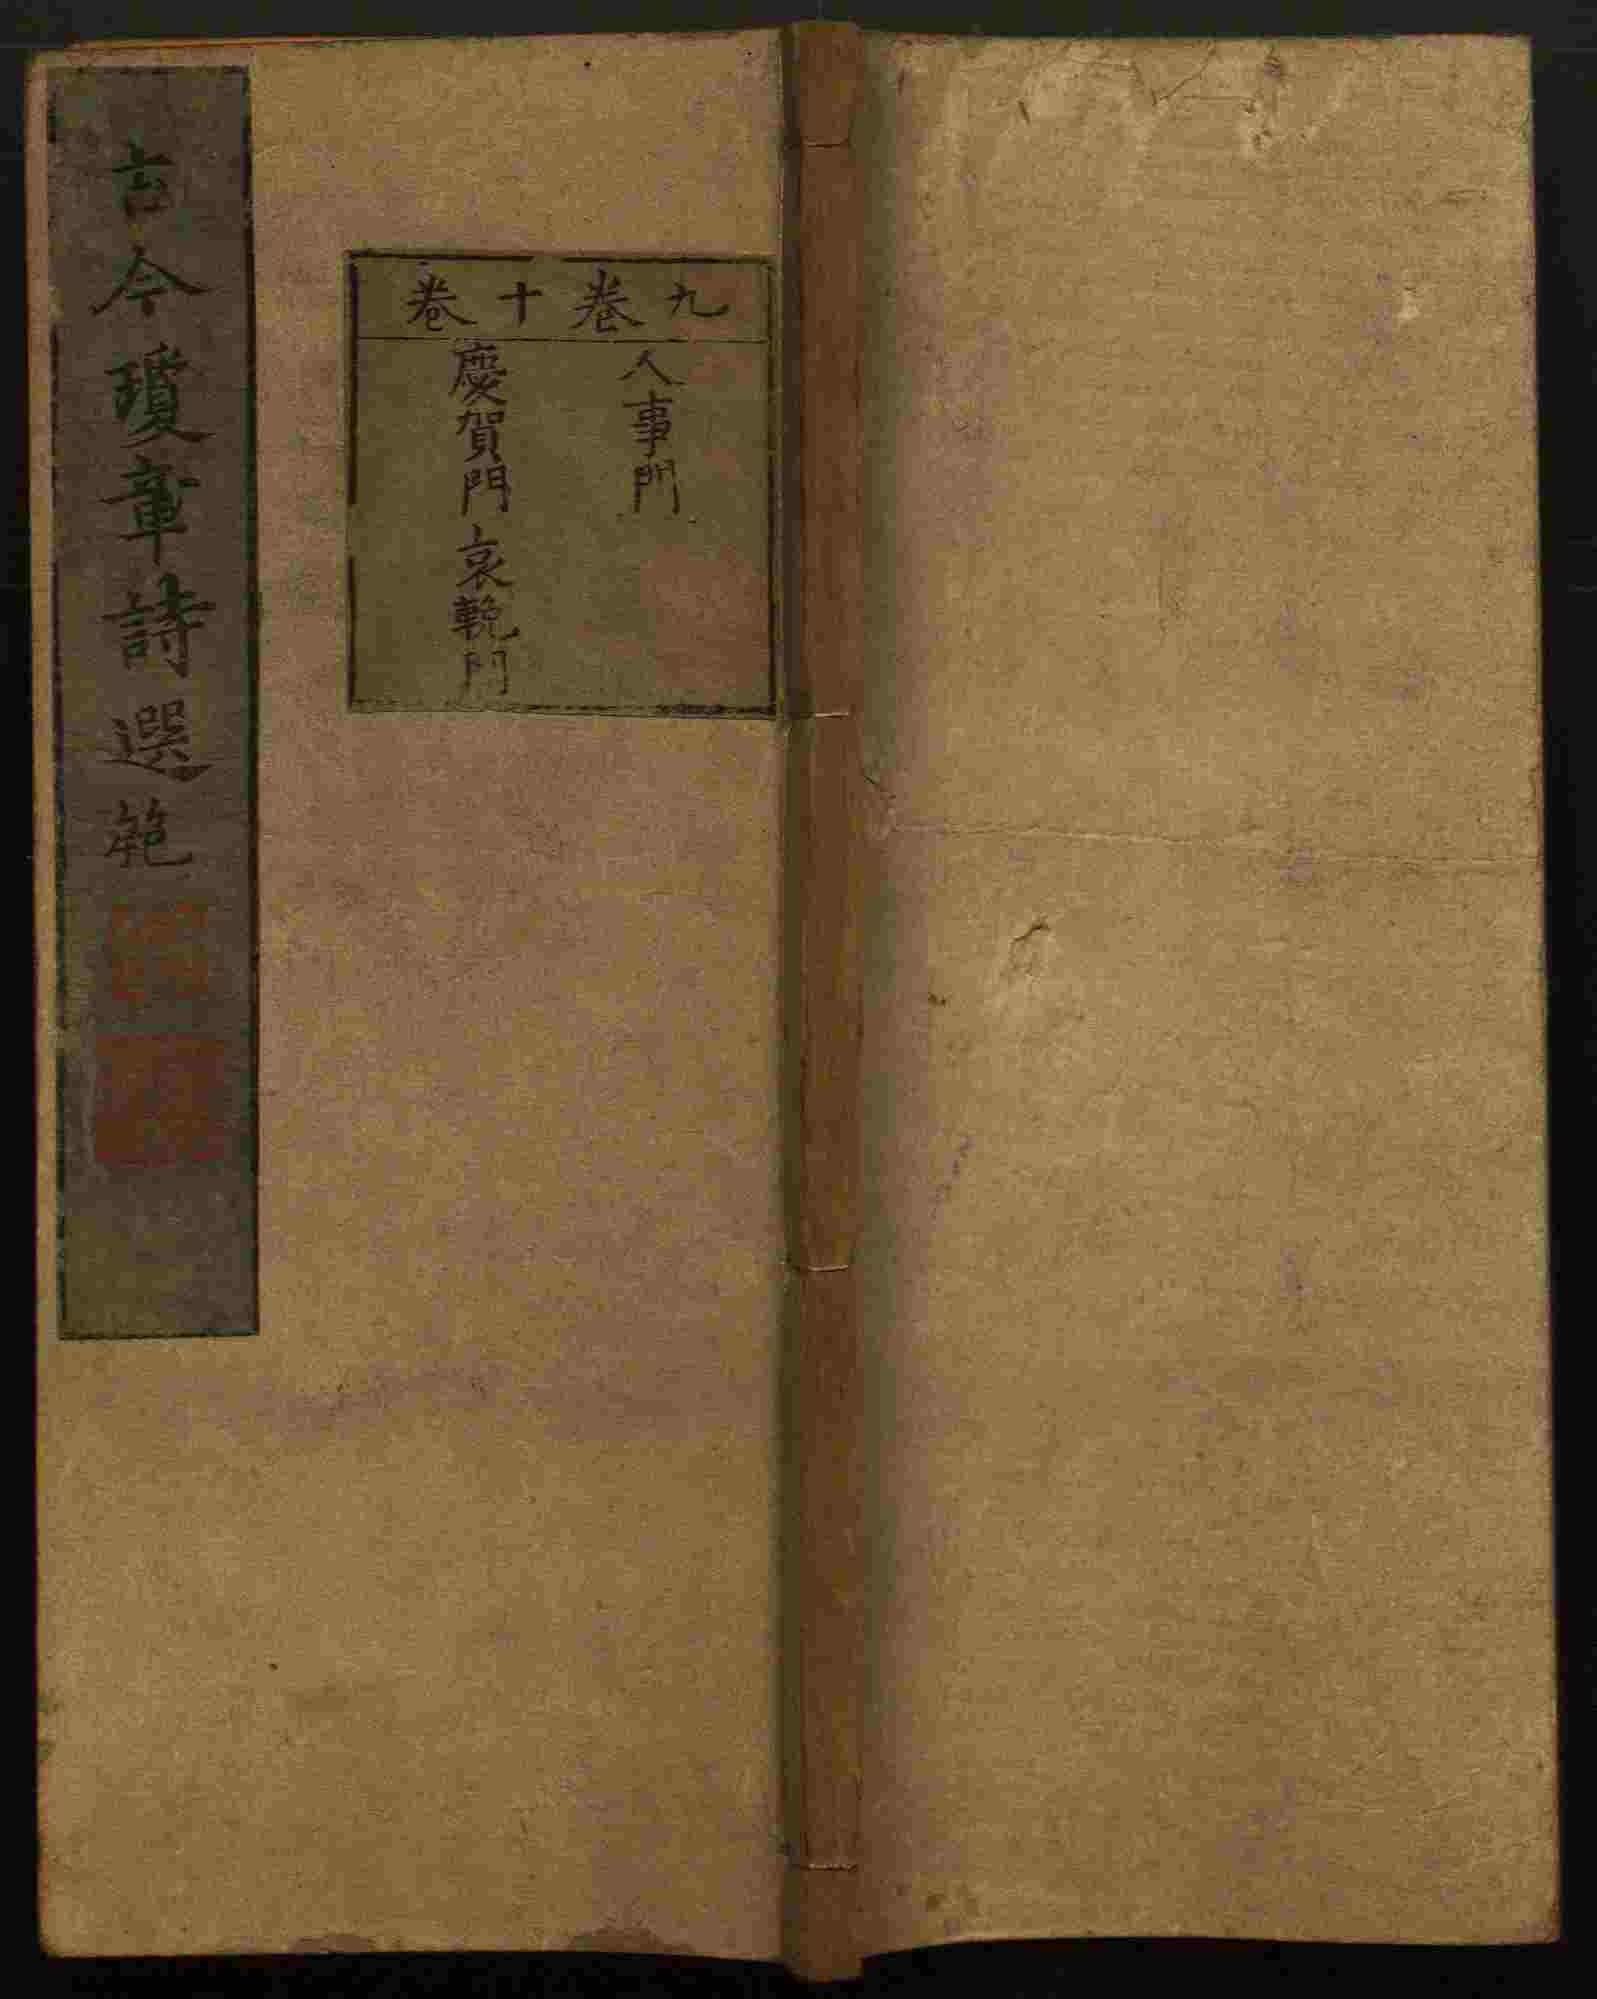 古今瓊章詩選 範
九卷 十卷
人事門
慶賀門 哀輓門